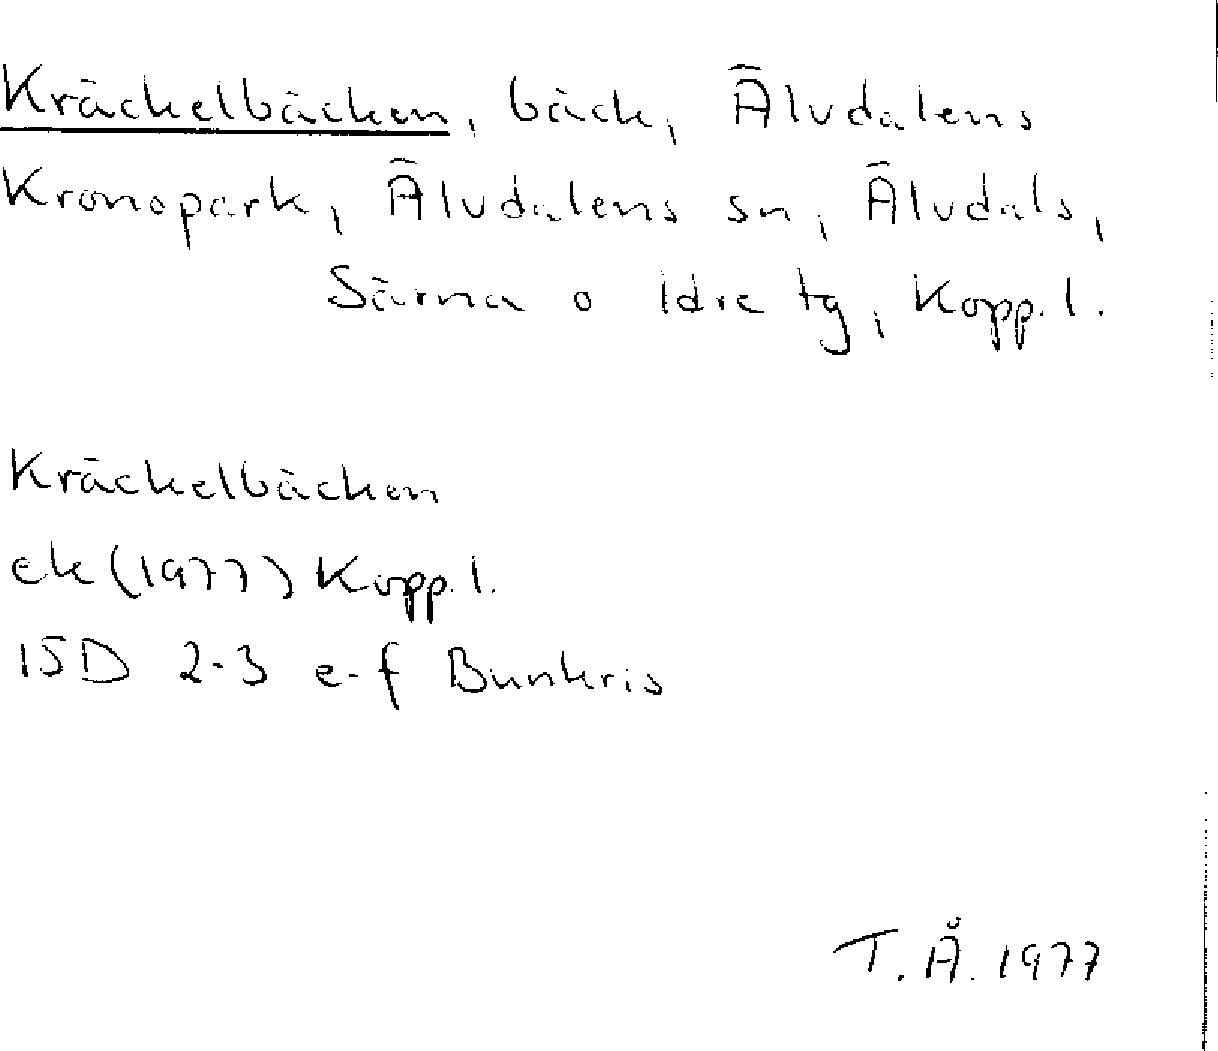 Kräckelbäcken, bäck, Älvdalens
Kronopark, Älvdalens sn, Älvdals,
Särna o Idre tg, Kopp. l.
Kräckelbäcken
ek (1977) Kopp. l.
15D 2-3 e-f Bunkris
T. Å. 1977